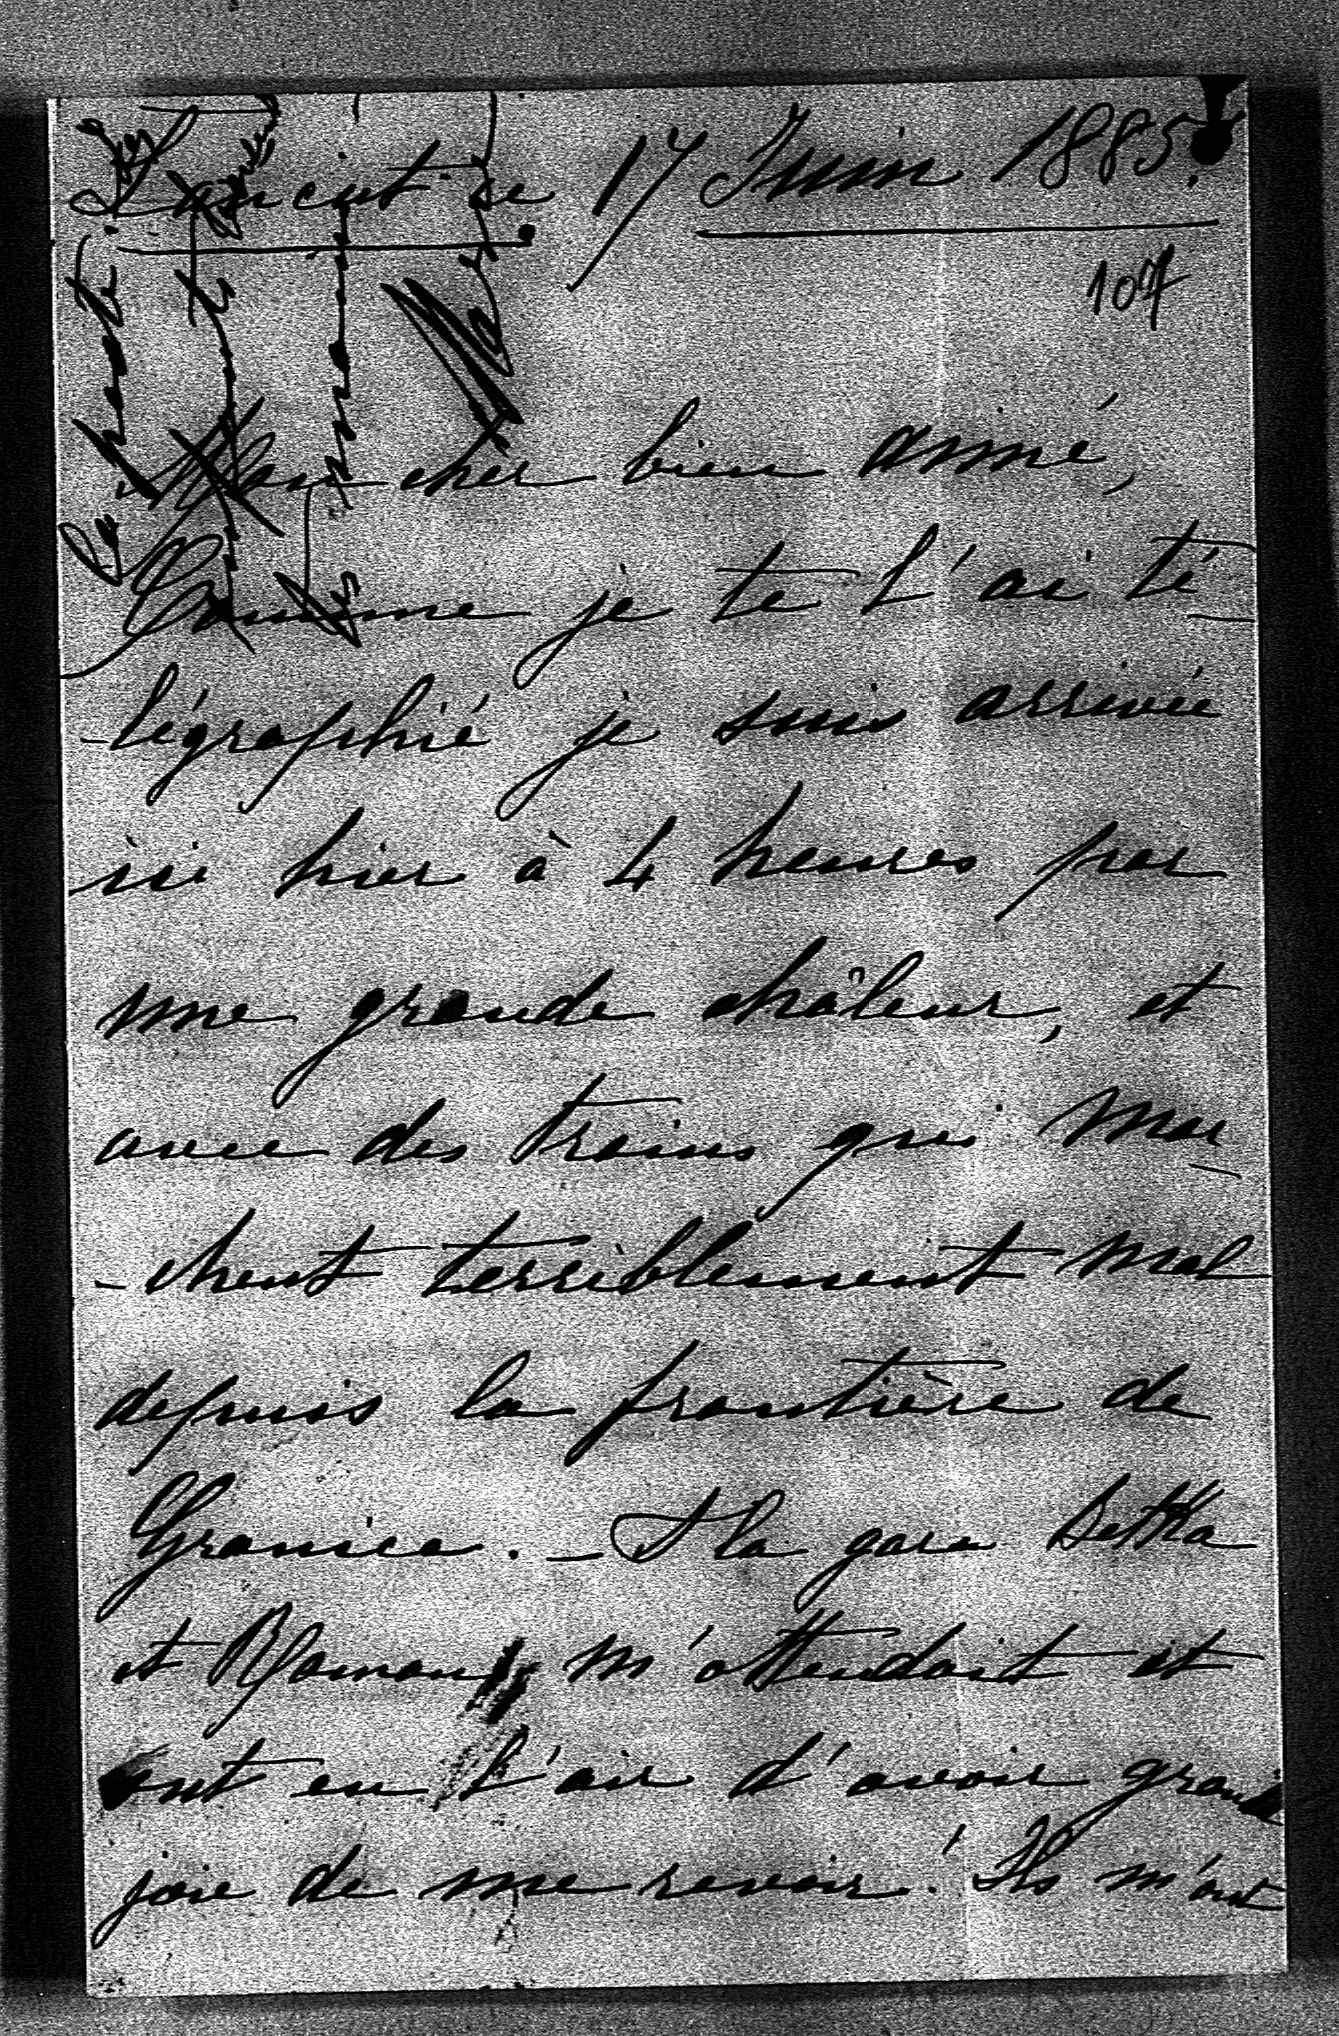 Lancut ce 17 Juin 1885.
107
Mon cher bien aimé,
Comme je te l'ai té-
-légraphié je suis arrivée
ici hier à 4 heures par
une grande châleur, et
avec des trains qui mar-
-chent terriblement mal
depuis la frontière de
Granica. _ A la gare Betka
et Roman m'attendait et
ont eu l'air d'avoir grande
joie de me revoir! Ils m'ont